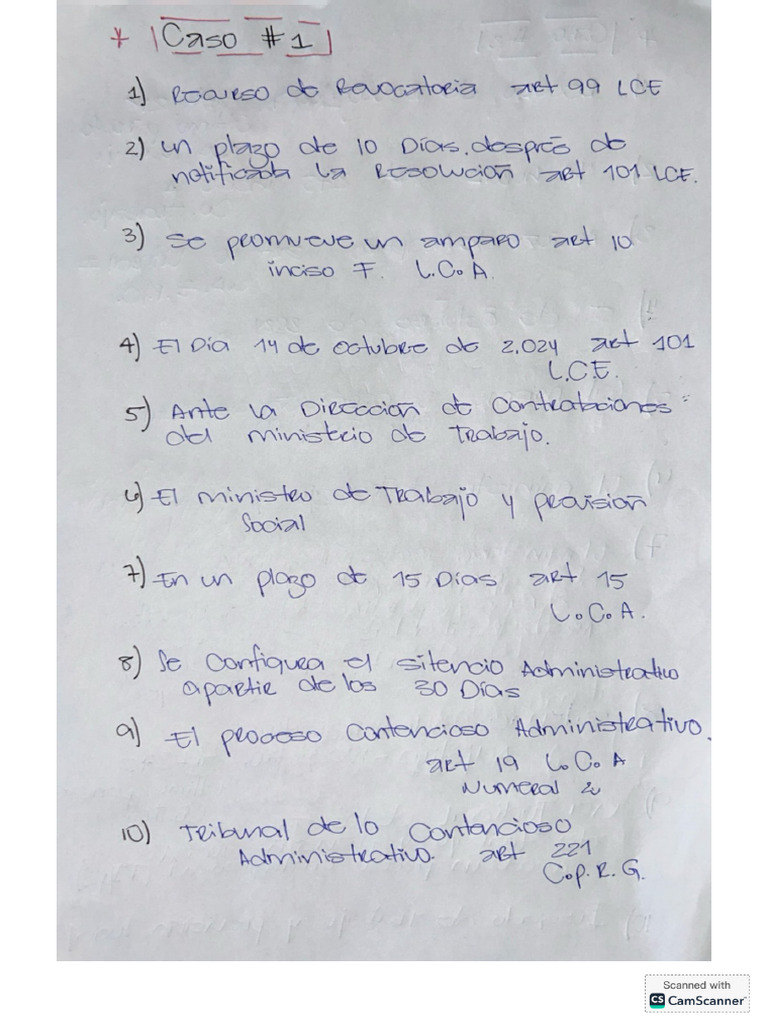 * Caso #1
1) Recurso de Revocatoria art 99 LCE
2) un plazo de 10 Días. después de
notificada la Resolución art 101 LCE.
3) Se promueve un amparo art 10
inciso F. L.C.A.
4) El Día 14 de octubre de 2,024 art 101
L.C.E.
5) Ante la Dirección de Contrataciones
del ministerio de Trabajo.
6) El ministro de Trabajo y previsión
Social
7) En un plazo de 15 Días art 15
L.C.A.
8) Se configura el silencio Administrativo
apartir de los 30 Días
9) El proceso Contencioso Administrativo.
art 19 L.C.A
Numeral 2
10) Tribunal de lo Contencioso
Administrativo. art 221
C.p.R.G.
Scanned with
CS CamScanner